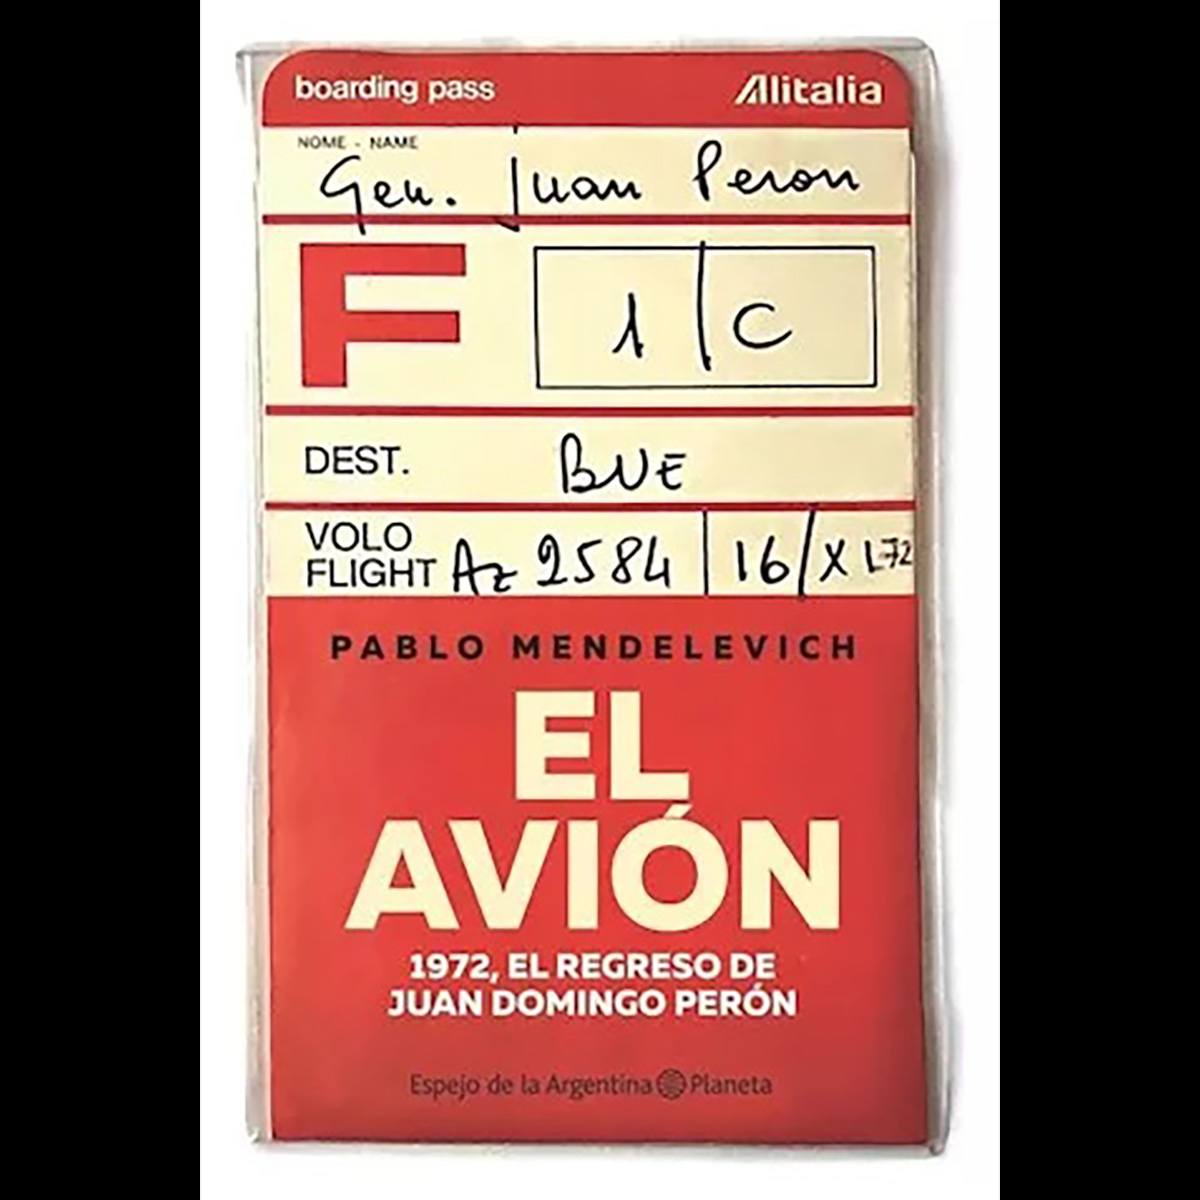 boarding pass Alitalia
NOME - NAME
Gen. Juan Peron
F 1/C
DEST. BUE
VOLO
FLIGHT AZ 2584 16/XI-72
PABLO MENDELEVICH
EL
AVIÓN
1972, EL REGRESO DE
JUAN DOMINGO PERÓN
Espejo de la Argentina Planeta